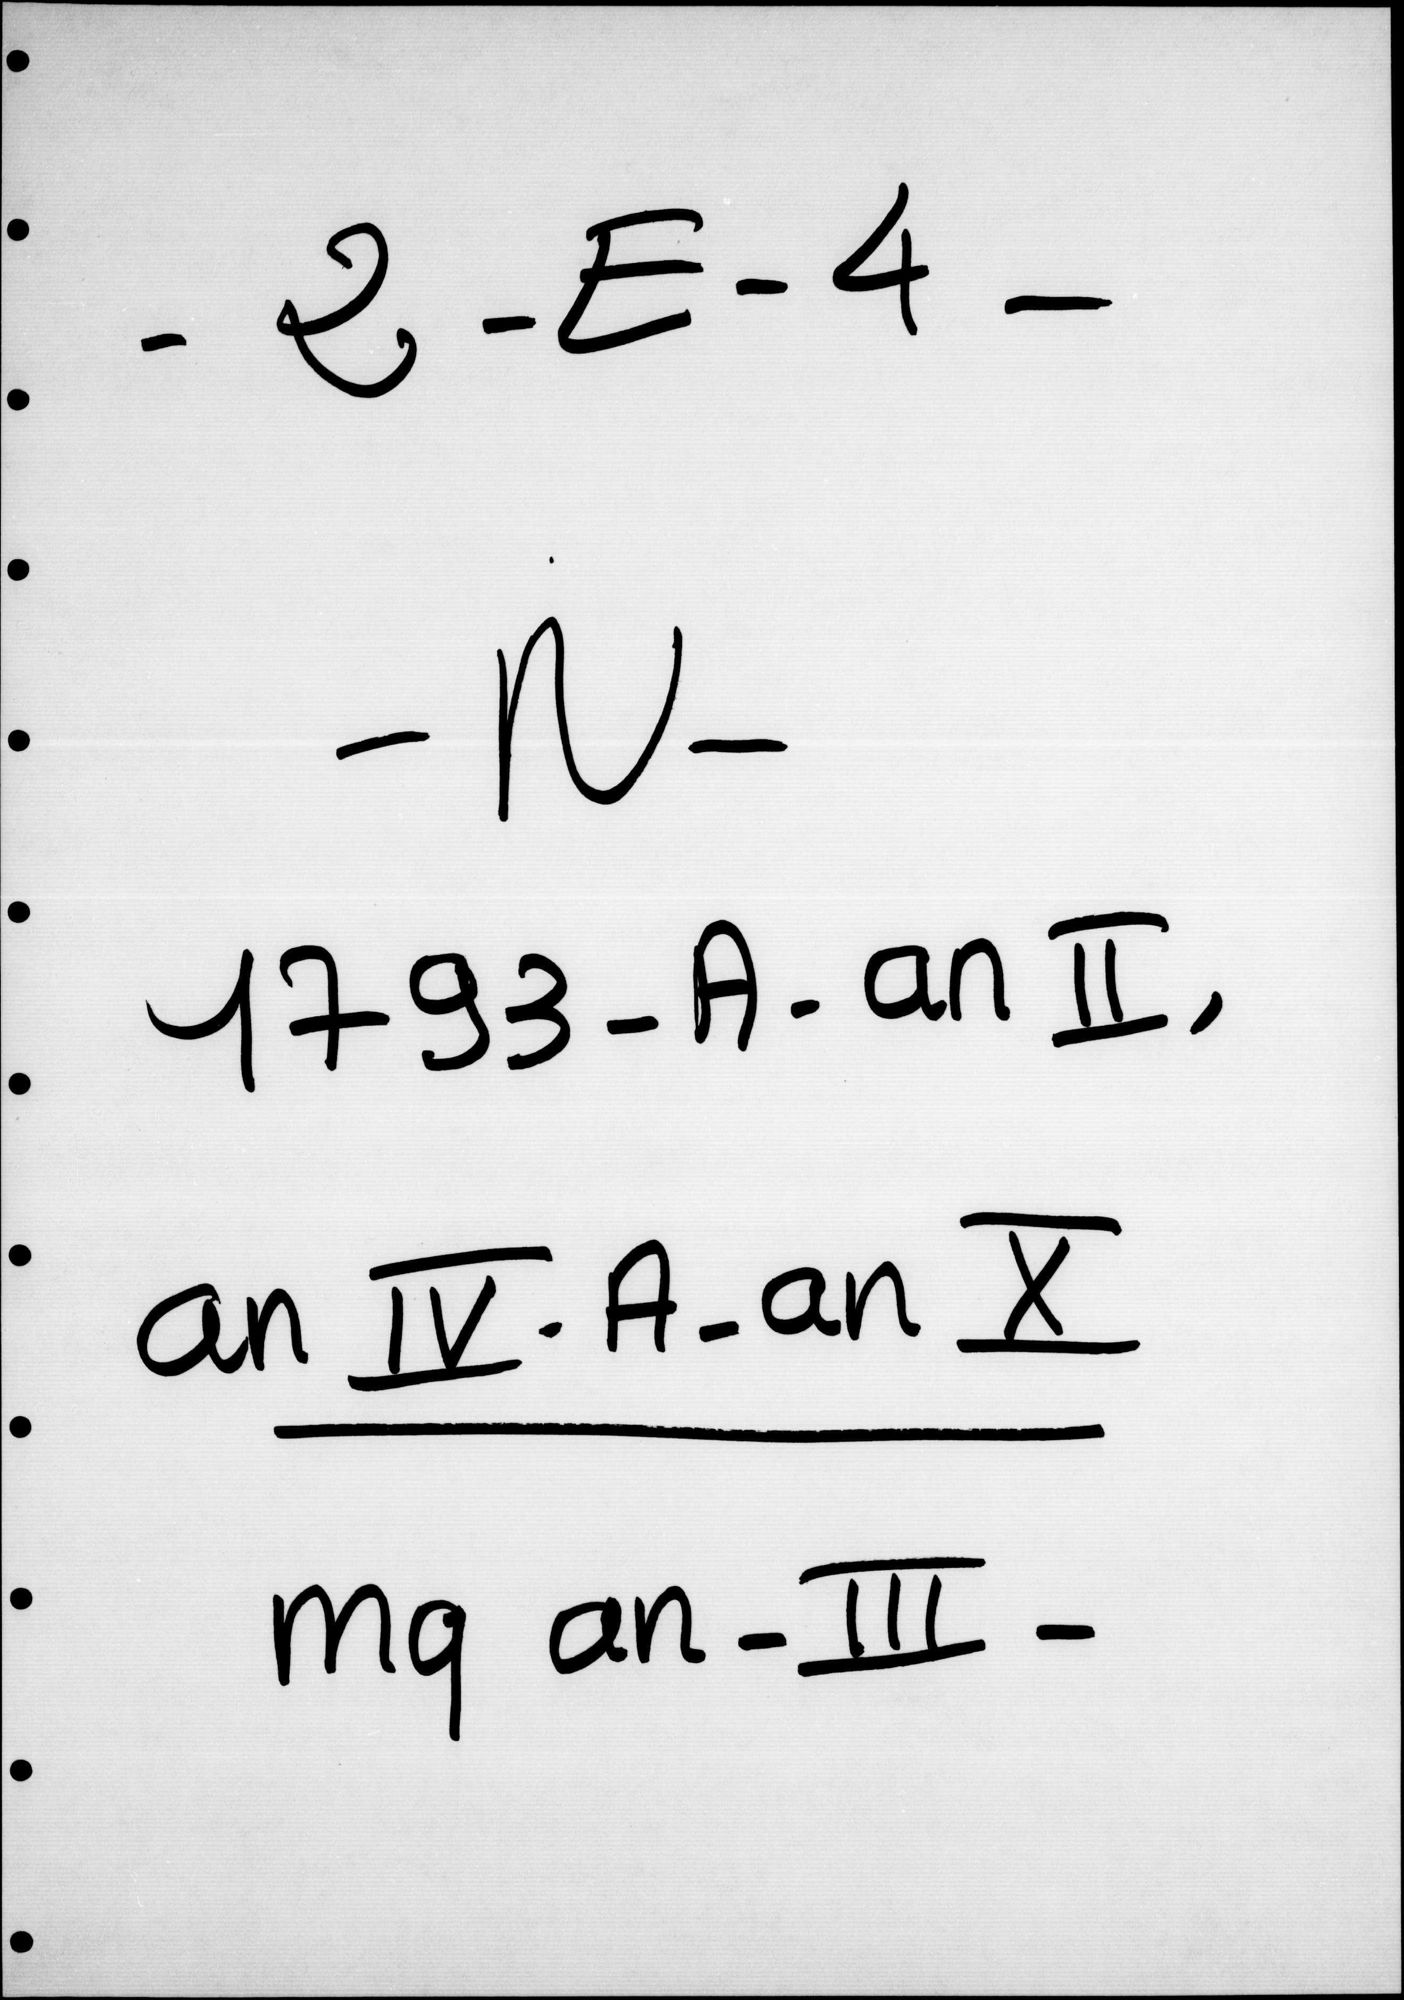 - 2 - E - 4 -
- N -
1793 - A - an II,
an IV - A - an X
mq an - III -